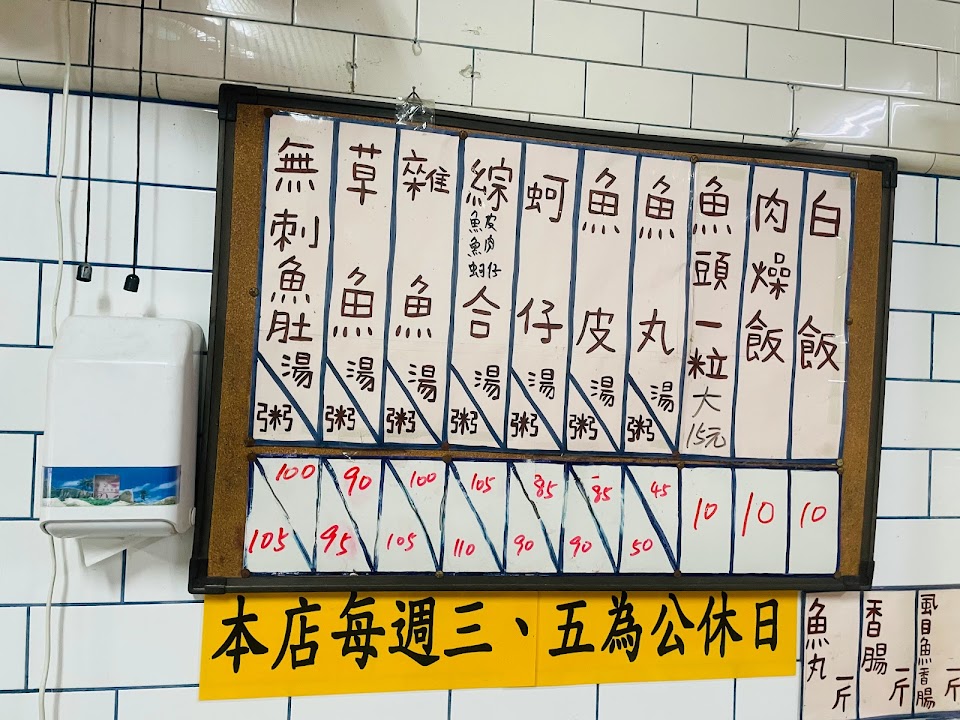 白飯
10
肉燥飯
10
魚頭一粒
大
15元
10
魚丸湯
粥
45
50
魚皮湯
粥
85
90
蚵仔湯
粥
85
90
綜合湯
魚皮
魚肉
蚵仔
粥
105
110
雜魚湯
粥
100
105
草魚湯
粥
90
95
無刺魚肚湯
粥
100
105
本店每週三、五為公休日
魚丸 一斤
香腸 一斤
虱目魚香腸 一斤